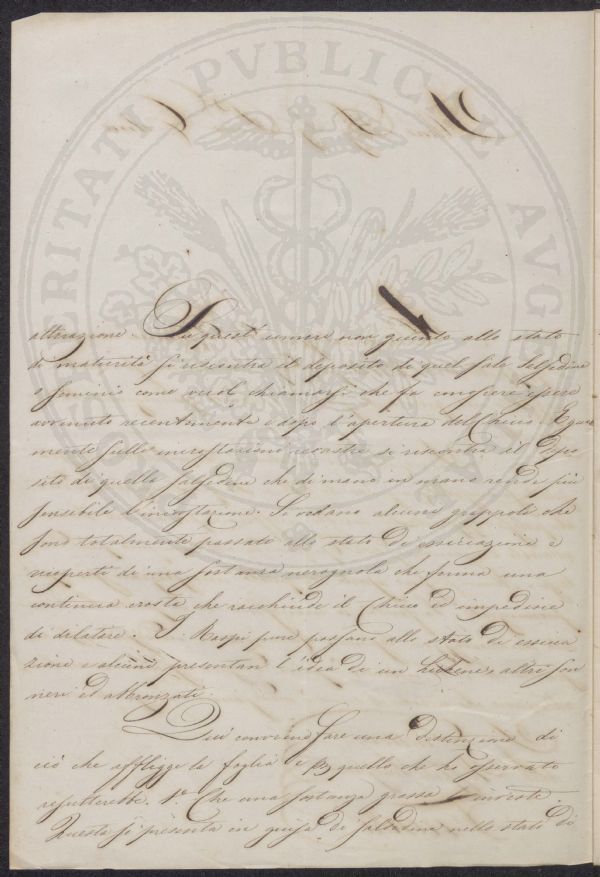 PROSPERITATI PVBLICAE AVGENDAE
altrazione. Su quest' umore non giunto allo stato
di maturità si riscontra il deposito di quel sale salsedine
o semenio come voul chiamarsi che fa conoscere essere
avvenuto recentemente e dopo l'apertura del Chicco. Egual
mente sulle incrostazioni nerastre si riscontra il depo
sito di quella salsedine che di mano in mano rende più
sensibile l'incrostazione. Si vedono alcune grappole che
sono totalmente passate allo stato di essiccazione e
ricoperti di una sostanza nerognola che forma una
continua crosta che racchiude il Chicco ed impedisce
di dilatare. I Raspi pure passano allo stato di essicca
zione e alcuni presentan l'idea de un altri son
neri ed abbronzati.
Qui conviene fare una distinzione di
ciò che affligge la foglia e p quello che ho osservato
risulterebbe. 1º. Che una sostanza grassa l'investe.
Questa si presenta in guisa di salsedine nello stato di